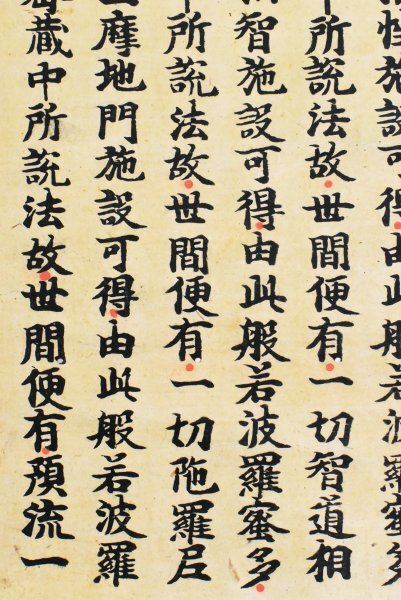 施設可得由此般若波羅蜜多
中所說法故世間便有一切智道相
智施設可得由此般若波羅蜜多
中所說法故世間便有一切陁羅尼
摩地門施設可得由此般若波羅
藏中所說法故世間便有預流一